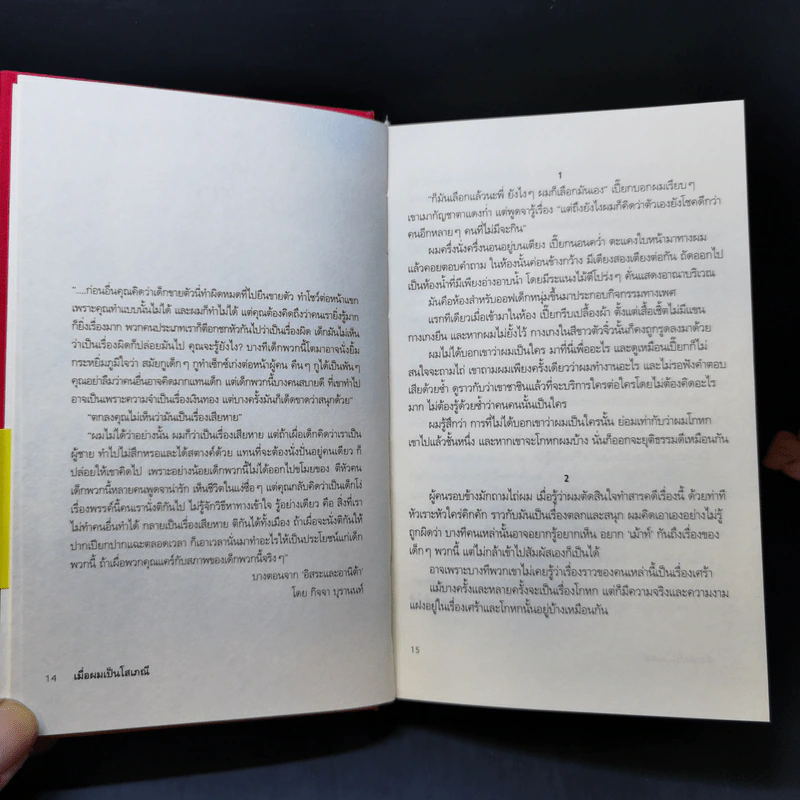 "....ก่อนอื่นคุณคิดว่าเด็กชายตัวนี่ทำผิดหมดที่ไปยืนขายตัว ทำโชว์ต่อหน้าแขก
เพราะคุณทำแบบนั้นไม่ได้ และผมก็ทำไม่ได้ แต่คุณต้องคิดถึงว่าคนเรายิ่งรู้มาก
ก็ยิ่งเรื่องมาก พวกคนประเภทเราก็ตีอกชกหัวกันไปว่าเป็นเรื่องผิด เด็กมันไม่เห็น
ว่าเป็นเรื่องผิดก็ปล่อยมันไป คุณจะรู้ยังไง? บางทีเด็กพวกนี้โตมาอาจนั่งยิ้ม
กระหยิ่มภูมิใจว่า สมัยกูเด็กๆ กูทำเซ็กซ์เก่งต่อหน้าผู้คน คืนๆ กูได้เป็นพันๆ
คุณอย่าลืมว่าคนอื่นอาจคิดมากแทนเด็ก แต่เด็กพวกนี้บางคนสบายดี ที่เขาทำไป
อาจเป็นเพราะความจำเป็นเรื่องเงินทอง แต่บางครั้งมันก็เด็ดขาดว่าสนุกด้วย"
"ตกลงคุณไม่เห็นว่ามันเป็นเรื่องเสียหาย"
"ผมไม่ได้ว่าอย่างนั้น ผมก็ว่าเป็นเรื่องเสียหาย แต่ถ้าเผื่อเด็กคิดว่าเราเป็น
ผู้ชาย ทำไปไม่สึกหรอและได้สตางค์ด้วย แทนที่จะต้องนั่งปั่นอยู่คนเดียว ก็
ปล่อยให้เขาคิดไป เพราะอย่างน้อยเด็กพวกนี้ไม่ได้ออกไปขโมยของ ตีหัวคน
เด็กพวกนี้หลายคนพูดจาน่ารัก เห็นชีวิตในแง่ซื่อๆ แต่คุณกลับคิดว่าเป็นเด็กโง่
เรื่องพรรค์นี้คนเรานั่งตีกันไป ไม่รู้จักวิธีหาทางเข้าใจ รู้อย่างเดียว คือ สิ่งที่เรา
ไม่ทำคนอื่นทำได้ กลายเป็นเรื่องเสียหาย ติกันได้ทั้งเมือง ถ้าเผื่อจะนั่งติกันให้
ปากเปียกปากแฉะตลอดเวลา ก็เอาเวลานั่นมาทำอะไรให้เป็นประโยชน์แก่เด็ก
พวกนี้ ถ้าเผื่อพวกคุณแคร์กับสภาพของเด็กพวกนี้จริงๆ"
บางตอนจาก 'อิสระและอานิต้า'
โดย กิจจา บุรานนท์
14 เมื่อผมเป็นโสเภณี
1
"ก็มันเลือกแล้วนะพี่ ยังไงๆ ผมก็เลือกมันเอง" เปี๊ยกบอกผมเรียบๆ
เขาเมากัญชาตาแดงก่ำ แต่พูดจารู้เรื่อง "แต่ถึงยังไงผมก็คิดว่าตัวเองยังโชคดีกว่า
คนอีกหลายๆ คนที่ไม่มีจะกิน"
ผมครึ่งนั่งครึ่งนอนอยู่บนเตียง เปี๊ยกนอนคว่ำ ตะแคงใบหน้ามาทางผม
แล้วคอยตอบคำถาม ในห้องนั้นค่อนข้างกว้าง มีเตียงสองเตียงต่อกัน ถัดออกไป
เป็นห้องน้ำที่มีเพียงอ่างอาบน้ำ โดยมีระแนงไม้ตีโปร่งๆ คั่นแสดงอาณาบริเวณ
มันคือห้องสำหรับออฟเด็กหนุ่มขึ้นมาประกอบกิจกรรมทางเพศ
แรกทีเดียวเมื่อเข้ามาในห้อง เปี๊ยกรีบเปลื้องผ้า ตั้งแต่เสื้อเชิ้ตไม่มีแขน
กางเกงยีน และหากผมไม่ยั้งไว้ กางเกงในสีขาวตัวจิ๋วนั้นก็คงถูกรูดลงมาด้วย
ผมไม่ได้บอกเขาว่าผมเป็นใคร มาที่นี่เพื่ออะไร และดูเหมือนเปี๊ยกก็ไม่
สนใจจะถามไถ่ เขาถามผมเพียงครั้งเดียวว่าผมทำงานอะไร และไม่รอฟังคำตอบ
เสียด้วยซ้ำ ดูราวกับว่าเขาชาชินแล้วที่จะบริการใครต่อใครโดยไม่ต้องคิดอะไร
มาก ไม่ต้องรู้ด้วยซ้ำว่าคนคนนั้นเป็นใคร
ผมรู้สึกว่า การที่ไม่ได้บอกเขาว่าผมเป็นใครนั้น ย่อมเท่ากับว่าผมโกหก
เขาไปแล้วชั้นหนึ่ง และหากเขาจะโกหกผมบ้าง นั่นก็ออกจะยุติธรรมดีเหมือนกัน
2
ผู้คนรอบข้างมักถามไถ่ผม เมื่อรู้ว่าผมตัดสินใจทำสารคดีเรื่องนี้ ด้วยท่าที
หัวเราะหัวใคร่คิกคัก ราวกับมันเป็นเรื่องตลกและสนุก ผมคิดเอาเองอย่างไม่รู้
ถูกผิดว่า บางทีคนเหล่านั้นอาจอยากรู้อยากเห็น อยาก 'เม้าท์' กันถึงเรื่องของ
เด็กๆ พวกนี้ แต่ไม่กล้าเข้าไปสัมผัสเองก็เป็นได้
อาจเพราะบางทีพวกเขาไม่เคยรู้ว่าเรื่องราวของคนเหล่านี้เป็นเรื่องเศร้า
แม้บางครั้งและหลายครั้งจะเป็นเรื่องโกหก แต่ก็มีความจริงและความงาม
แฝงอยู่ในเรื่องเศร้าและโกหกนั้นอยู่บ้างเหมือนกัน
15